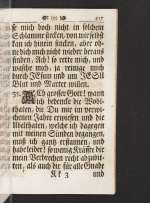 517
sse mich doch nicht in solchem
Schlamme stecken, von mir selbst
kan ich hinein sincken, aber oh-
ne dich mich nicht wieder heraus
finden. Ach! so rette mich, und
wasche mich, ja reinige mich
durch JEsum und um JESU
Blut und Marter willen.
Ach grosser Gott! wann
ich bedencke die Wohl-
thaten, die Du mir im verwi-
chenen Jahre erwiesen und die
Ubelthaten, welche ich dagegen
mit meinen Sünden begangen,
muß ich gantz erstaunen, und
habe leider! so wenig Kräffte dir
mein Verbrechen recht abzubit-
ten, als auch dir für alle Gnade
K k 3 und